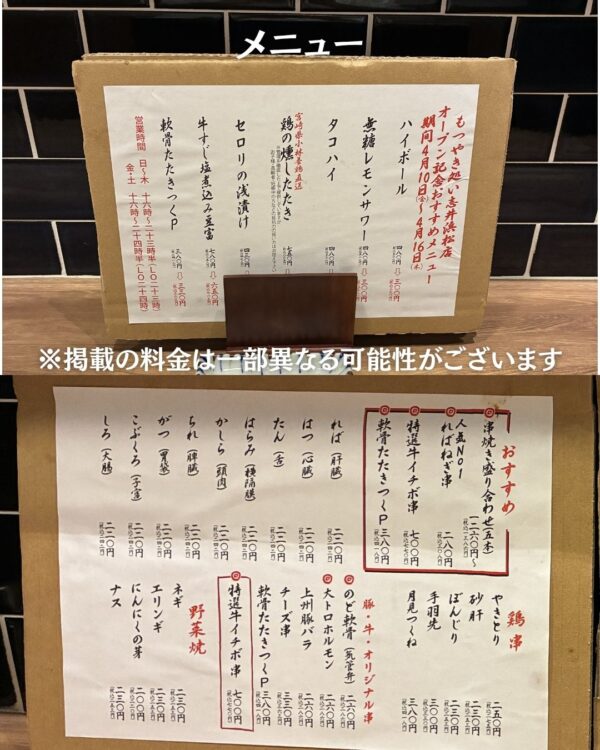 メニュー
もつやき処い志井浜松店
オープン記念おすすめメニュー
期間4月10日(金)〜4月16日(木)
ハイボール
無糖レモンサワー
タコハイ
宮崎県小林養鶏直送
鶏の燻したたき
セロリの浅漬け
牛すじ塩煮込み豆富
軟骨たたきつくP
営業時間 日〜木 十六時〜二十三時半(LO二十三時)
金・土 十六時〜二十四時半(LO二十四時)
※掲載の料金は一部異なる可能性がございます
おすすめ
串焼き盛り合わせ(五本)
一二六〇円〜
人気NO1
ればねぎ串
二八〇円
特選牛イチボ串
七〇〇円
軟骨たたきつくP
三八〇円
れば(肝臓)
二二〇円
はつ(心臓)
二二〇円
たん(舌)
二二〇円
はらみ(横隔膜)
二二〇円
かしら(頭肉)
二二〇円
ちれ(脾臓)
二二〇円
がつ(胃袋)
二二〇円
こぶくろ(子宮)
二二〇円
しろ(大腸)
二二〇円
鶏串
やきとり
二五〇円
砂肝
ぼんじり
手羽先
三〇〇円
月見つくね
三八〇円
豚・牛・オリジナル串
のど軟骨(気管弁)
二六〇円
大トロホルモン
二六〇円
上州豚バラ
二六〇円
チーズ串
三三〇円
軟骨たたきつくP
三八〇円
特選牛イチボ串
七〇〇円
野菜焼
ネギ
二三〇円
エリンギ
二三〇円
にんにくの芽
ナス
二三〇円